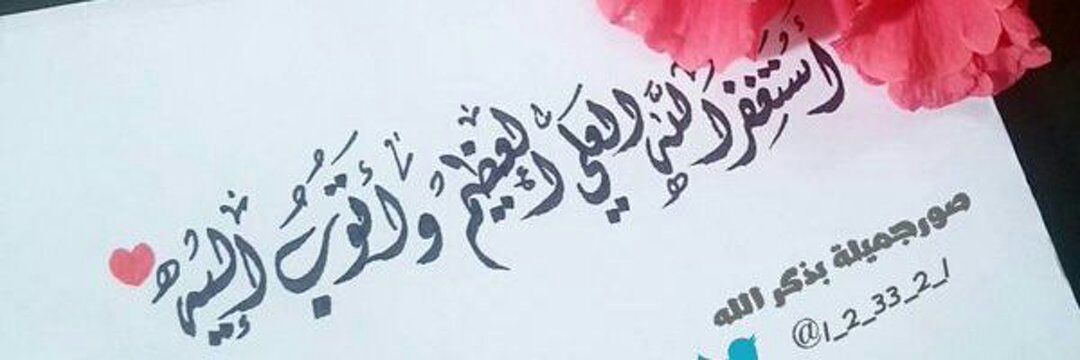 أستغفر الله العلي العظيم وأتوب إليه
صور جميلة بذكر الله
@1_2_33_2_1